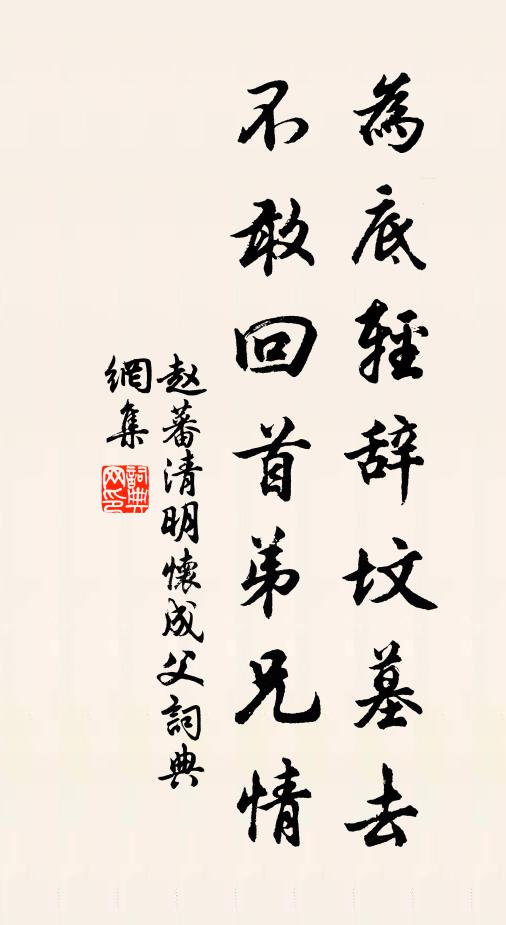 為底輕辞坟墓去
不敢回首弟兄情
赵蕃清明懷成父詞典
網集
詞典網印